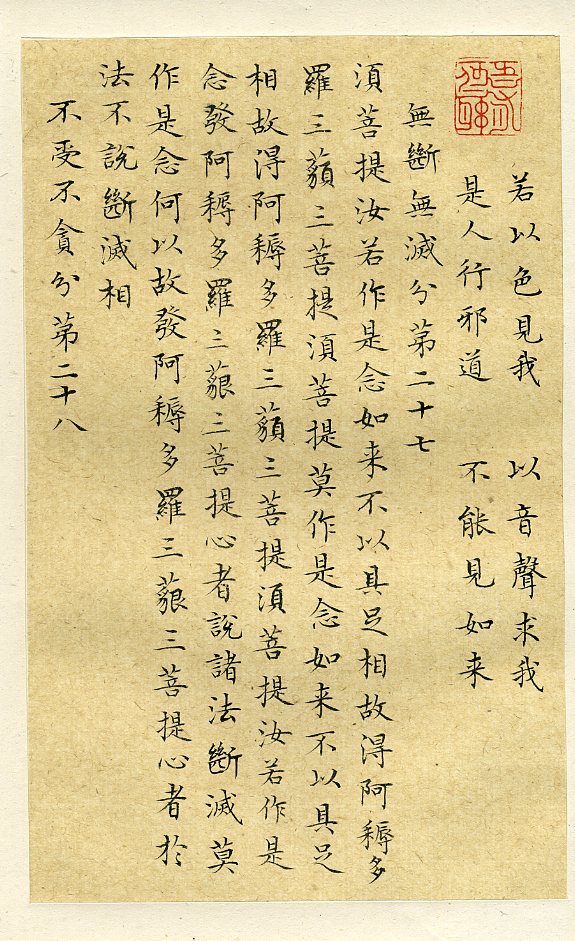 若以色見我　以音聲求我
是人行邪道　不能見如来
無斷無滅分第二十七
須菩提汝若作是念如来不以具足相故得阿耨多
羅三藐三菩提須菩提莫作是念如来不以具足
相故得阿耨多羅三藐三菩提須菩提汝若作是
念發阿耨多羅三藐三菩提心者說諸法斷滅莫
作是念何以故發阿耨多羅三藐三菩提心者於
法不說斷滅相
不受不貪分第二十八